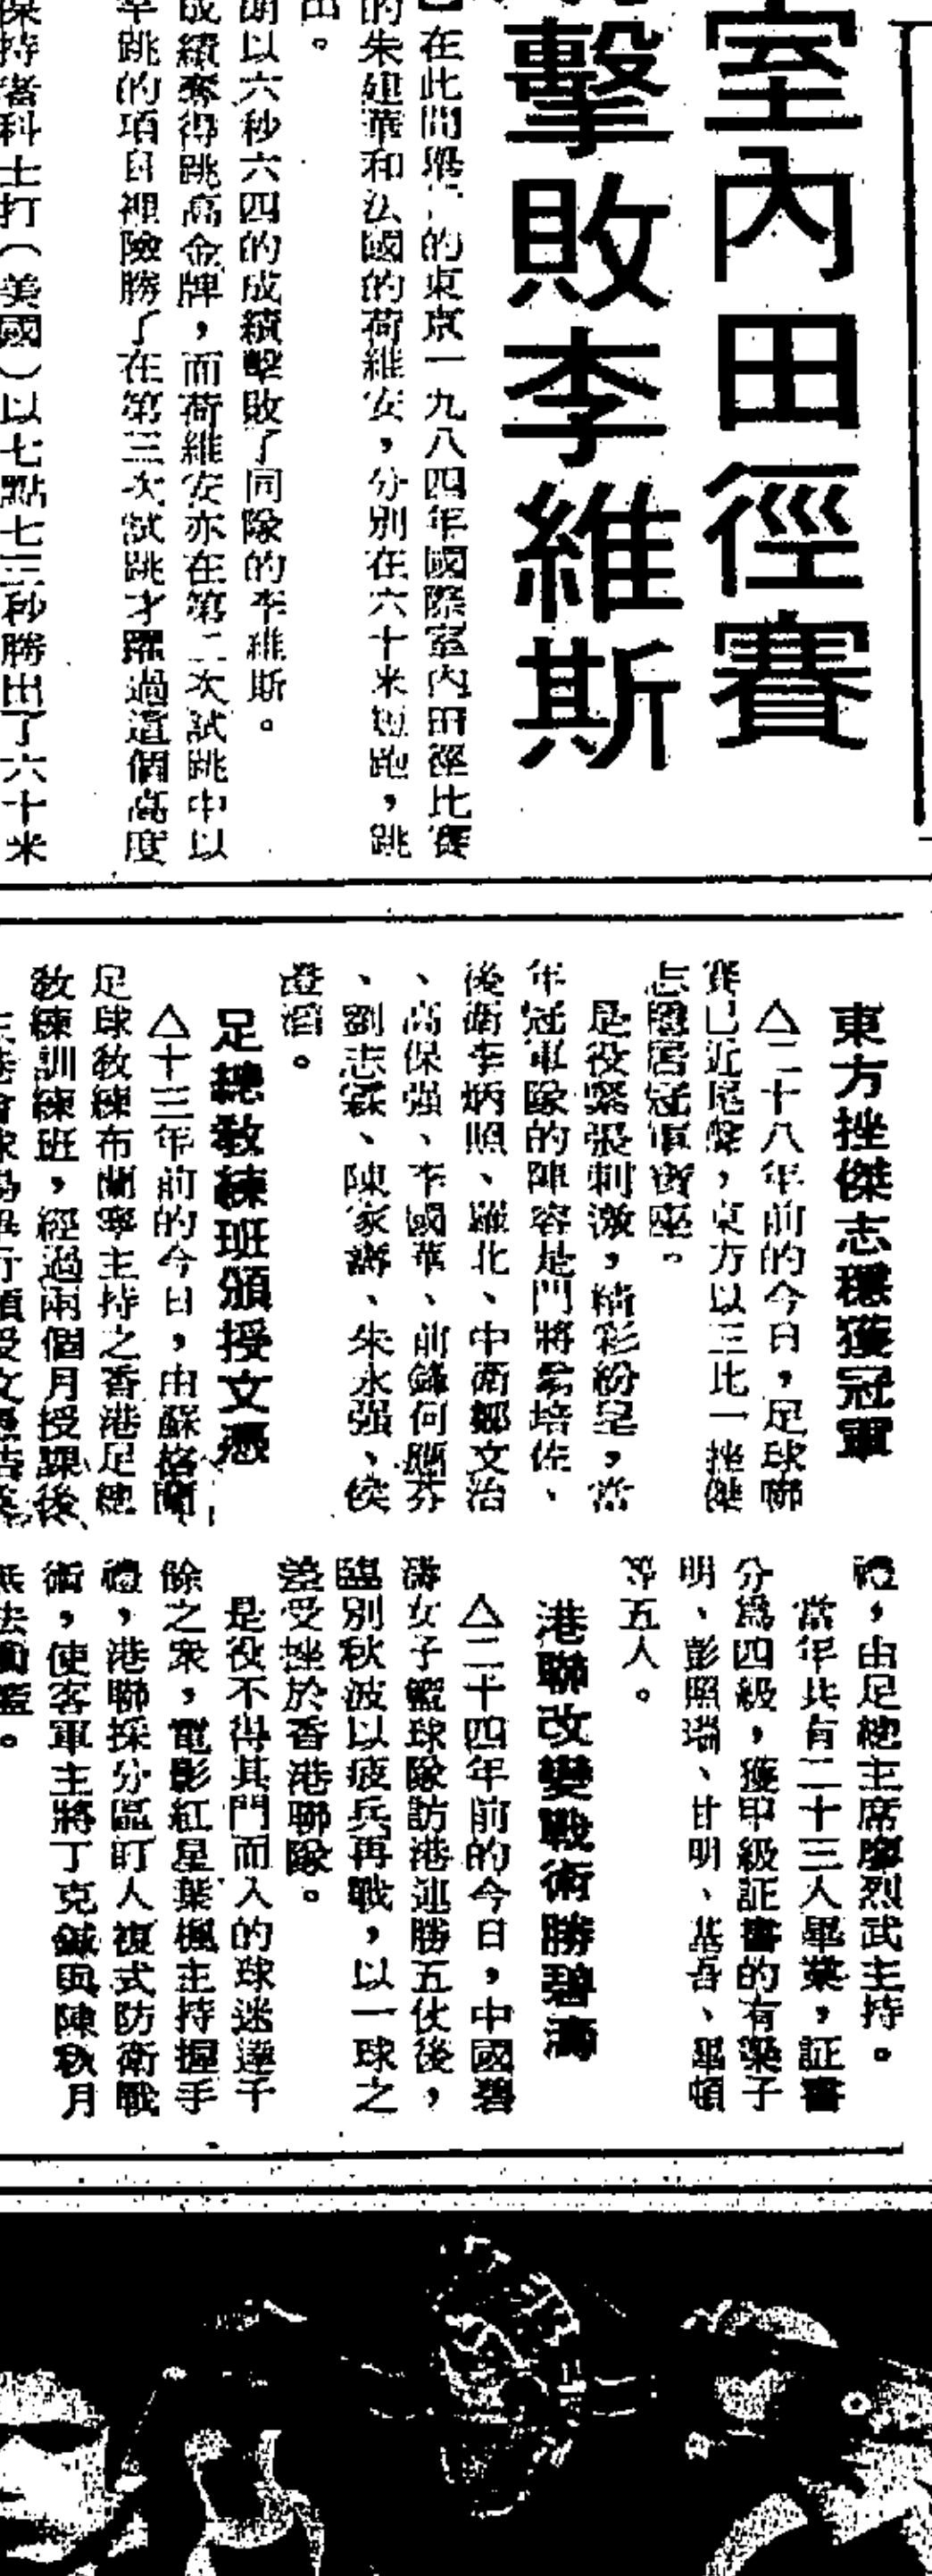 室內田徑賽
擊敗李維斯
在此間舉 的東京一九八四年國際室內田徑比賽
的朱建華和法國的荷維安，分別在六十米短跑，跳
出。
以六秒六四的成績擊敗了同隊的李維斯。
成績奪得跳高金牌，而荷維安亦在第二次試跳中以
跳的項目裡險勝了在第三次試跳才躍過這個高度
保持者科士打（美國）以七點七三秒勝出了六十米
東方挫傑志穩獲冠軍
△二十八年前的今日，足球聯
賽已近尾聲，東方以三比一挫傑
志穩居冠軍寶座。
是役緊張刺激，精彩紛呈，當
年冠軍隊的陣容是門將 培佐、
後衛李炳照、羅北、中衛鄒文治
、高保强、李國華、前鋒何應芬
、劉志霖、陳家 、朱永强、侯
澄滔。
足總教練班頒授文憑
△十三年前的今日，由蘇格蘭
足球教練布蘭寧主持之香港足總
教練訓練班，經過兩個月授課後
頒授文憑
禮，由足總主席廖烈武主持。
當年共有二十三人畢業，証書
分為四級，獲甲級証書的有 子
明、彭照瑞、甘明、基吾、畢頓
等五人。
港聯改變戰術勝碧濤
△二十四年前的今日，中國碧
濤女子籃球隊訪港連勝五伙後，
臨別秋波以疲兵再戰，以一球之
差受挫於香港聯隊。
是役不得其門而入的球迷達千
餘之衆，電影紅星葉楓主持握手
禮，港聯採分區盯人複式防衛戰
術，使客軍主將丁克鍼與陳秋月
無法 籃。